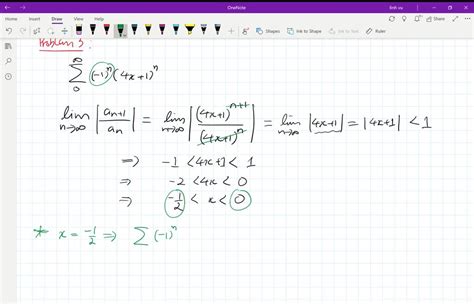 OneNote
linh vu
File Home Insert Draw View Help
Shapes Ink to Shape Ink to Text Math
Problem 3:
∞
∑ (-1)ⁿ (4x+1)ⁿ
0
lim n→∞ |aₙ₊₁/aₙ| = lim n→∞ |(4x+1)ⁿ⁺¹/(4x+1)ⁿ| = lim n→∞ |4x+1| = |4x+1| < 1
⇒ -1 < 4x+1 < 1
⇒ -2 < 4x < 0
⇒ -1/2 < x < 0
* x = -1/2 ⇒ ∑ (-1)ⁿ